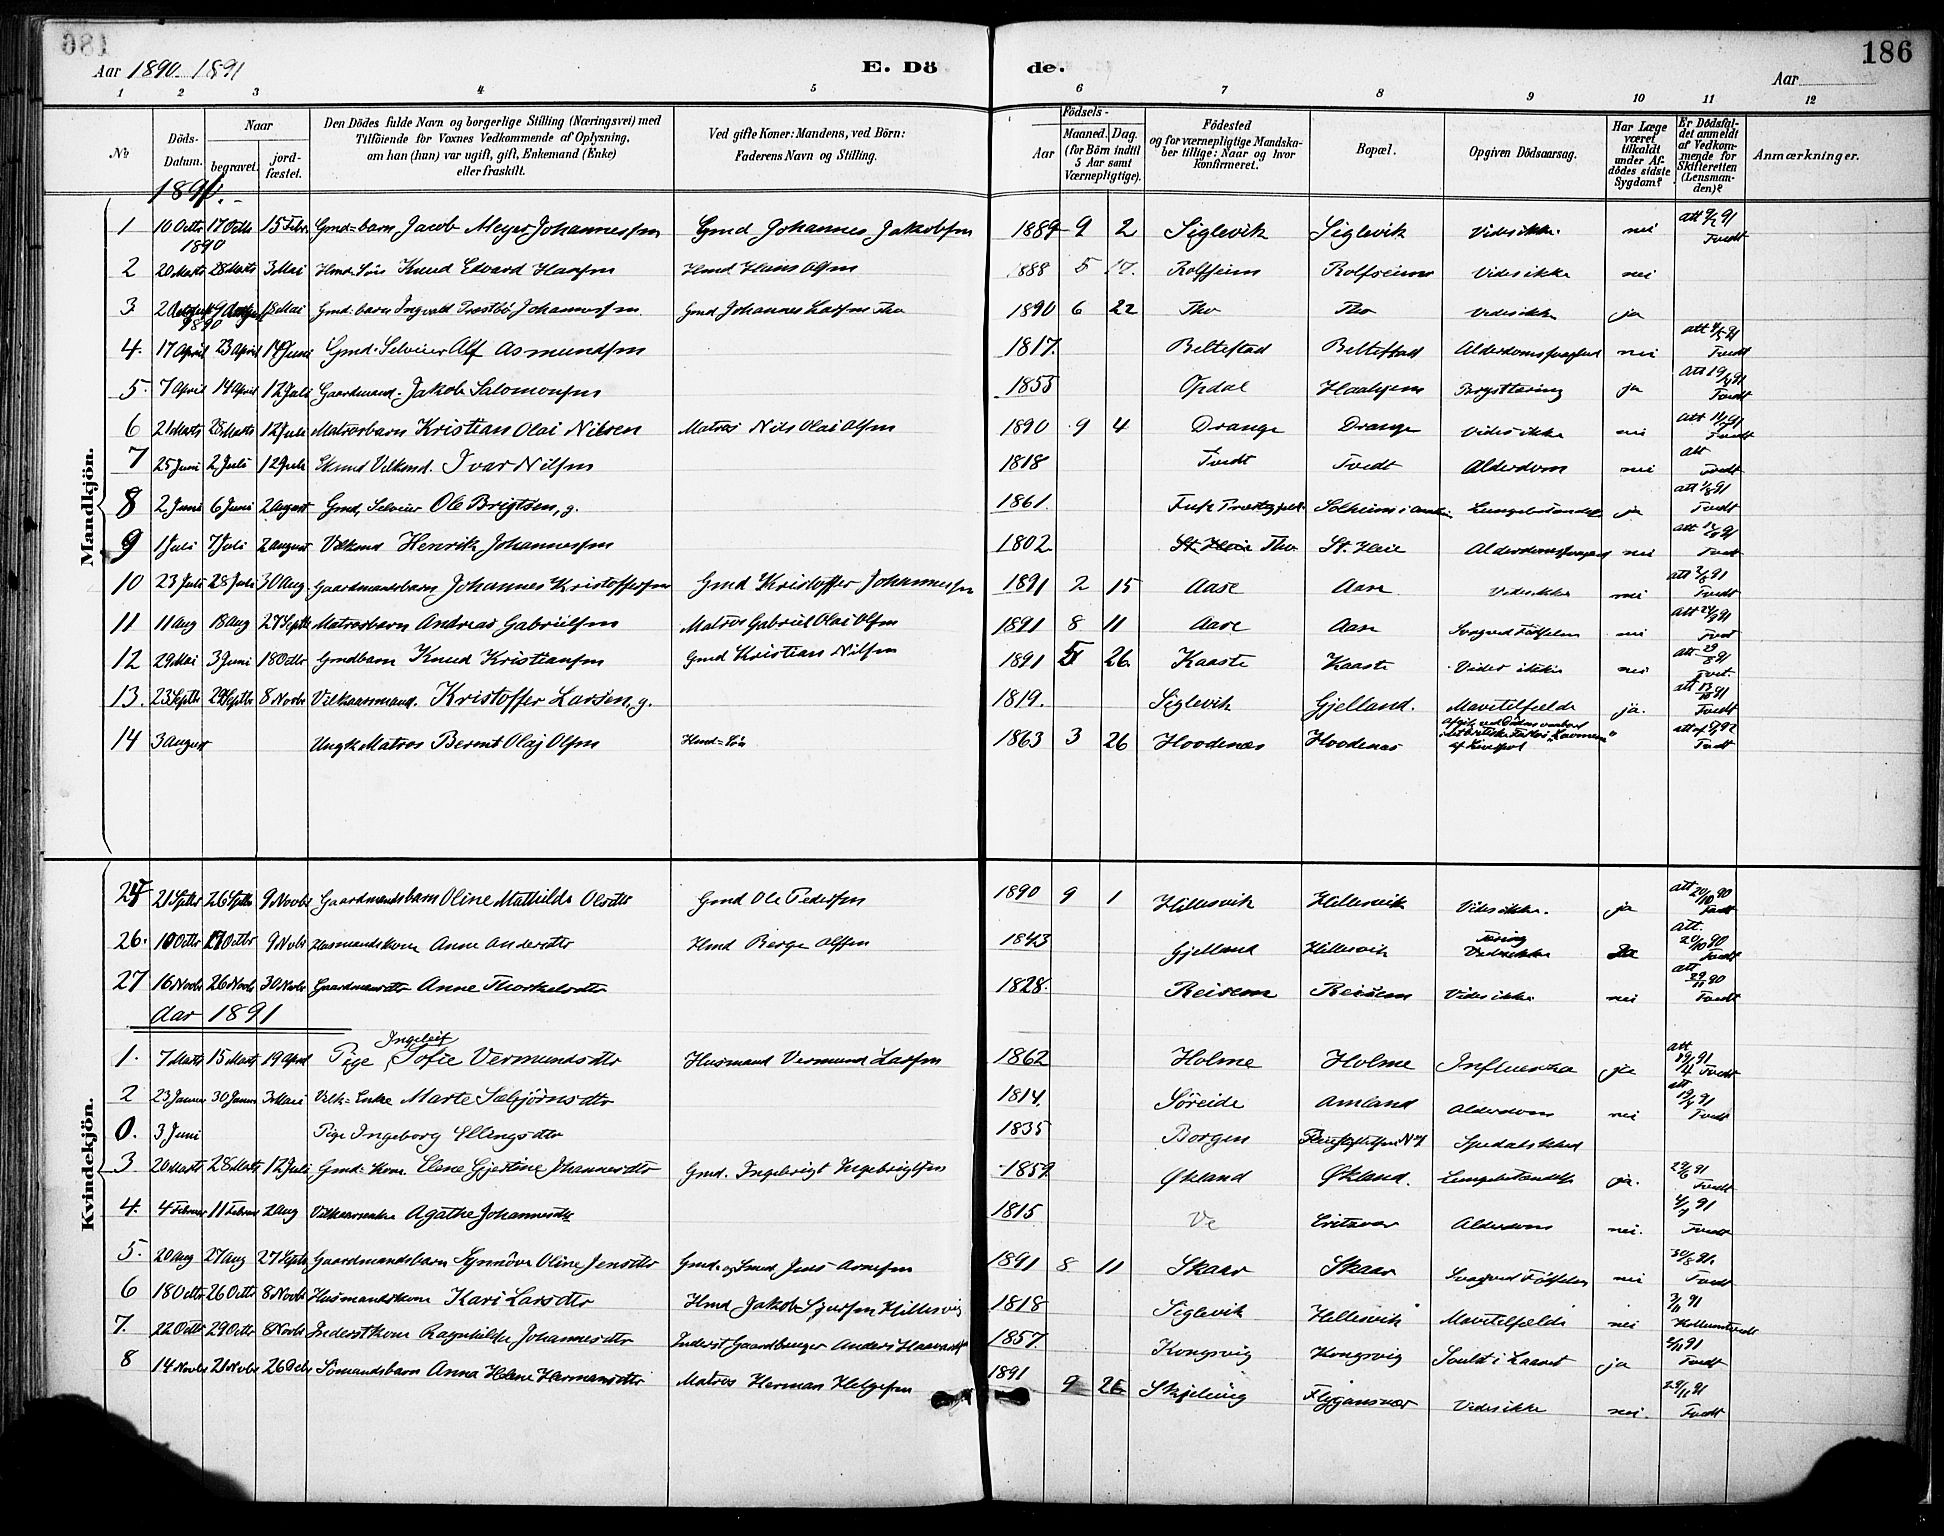 186
Aar 1890. 1891 E. Dö de. Aar
1 2 3 4 5 6 7 8 9 10 11 12
No
Döds-Datum.
Naar begravet. jord-fæstet.
Den Dödes fulde Navn og borgerlige Stilling (Næringsvei) med Tilföiende for Voxnes Vedkommende af Oplysning, om han (hun) var ugift, gift, Enkemand (Enke) eller fraskilt.
Ved gifte Koner: Mandens, ved Börn: Faderens Navn og Stilling.
Födsels-
Aar Maaned. Dag. (for Börn indtil 5 Aar samt Værnepligtige).
Födested og for værnepligtige Mandskaber tillige: Naar og hvor konfirmeret.
Bopæl.
Opgiven Dödsaarsag.
Har Læge været tilkaldt under Afdödes sidste Sygdom?
Er Dödsfaldet anmeldt af Vedkommende for Skifteretten (Lensmanden)?
Anmærkninger.
Mandkjön.
1891.
1 10 Octbr 1890 17 Octb 15 Febr. Gmd=barn Jacob Meyer Johannessen Gmd Johannes Jakobsen 1889 9 2 Siglevik Siglevik Vides ikke. nei att 9/2 91 Tvedt
2 20 Marts 28 Marts 3 Mai Hmd. Søn Knud Edvard Hansen Hmd Hans Olsen 1888 5 17. Rolfseim Rolfseim Vides ikke nei
3. 18 Mai Gmd: barn Ingvald Prestbö Johannessen Gmd Johannes Larsen Tho 1890 6 22 Tho Tho Vides ikke ja
4. 17 April 23 April 14 Juni Gmd. Selveier Alf Asmundsen 1817. Beltestad Beltestad Alderdomssvaghed nei att 4/5 91 Tvedt
5. 7 April 14 April 12 Juli Gaardmand. Jakob Salomonsen 1855 Opdal Brysttæring ja att 19/4 91 Tvedt
6 21 Marts 28 Marts 12 Juli Matrosbarn Kristian Olai Nilsen Matros Nils Olai Olsen 1890 9 4 Drange Drange Vides ikke nei att 91 Tvedt
7 25 Juni 2 Juli 12 Juli Vilkmd. Ivar Nilsen 1818 Tvedt Tvedt Alderdom nei att Tvedt
8 2 Juni 6 Juni 2 August Gmd, Selveier Ole Brigtsen, g. 1861. Solheim i Lungebetændelse ja att 91 Tvedt
9 1 Juli 7 Juli 2 August Vilkmd Henrik Johannessen 1802 St. Haie Tho St. Haie Alderdomssvaghed nei att 91 Tvedt
10 23 Juli 28 Juli 30 Aug. Gaardmandsbarn Johannes Kristoffersen Gmd Kristoffer Johannessen 1891 2 15 Aase Aase Vides ikke nei att 91 Tvedt
11 11 Aug 18 Aug 27 Septb Matrosbarn Andreas Gabrielsen Matros Gabriel Olai Olsen 1891 8 11 Aase Aase Svag ved Fødselen nei att 91 Tvedt
12 29 Mai 3 Juni 18 Octbr Gmdbarn Knud Kristiansen Gmd Kristian Nilsen 1891 5 26 Kaaste Kaaste Vides ikke nei att 29/8 91 Tvet.
13. 23 Septb 29 Septb 8 Novbr Vilkaarsmand. Kristoffer Larsen, g. 1819. Siglevik Gjelland. Mavetilfælde ja. att 13/10 91 Tvedt
14 3 August Ungk Matros Bernt Olaj Olsen Hmd=Søn 1863 3 26 Hoodenæs Hoodenæs Tvedt
Kvindekjön.
25 21 Septbr 26 Septb 9 Novbr Gaardmandsbarn Oline Mathilde Olsdtr Gmd Ole Pedersen 1890 9 1 Hillesvik Hillesvik Vides ikke. ja att 20/10 90 Tvedt
26. 10 Octbr 17 Octbr 9 Nvbr Husmandskone Anne Andersdtr Hmd Berge Olsen 1843 Gjelland Hillesvik Tæring Vides ikke att. 20/10 90 Tvedt
27 16 Novbr 26 Novbr 30 Novbr Anne Thorkelsdtr 1828. Reisem Reisem Vides ikke nei att 29/11 90 Tvedt
Aar 1891
1. 7 Marts 15 Marts 19 April Pige Ingeleif Sofie Vermundsdtr Husmand Vermund Larsen 1862 Holme Holme Influenza ja att 19/4 91 Tvedt
2 23 Januar 30 Januar 3 Mai Vilk=Enke Marte Sæbjørnsdtr 1814. Søreide Amland Alderdom nei att 19/4 91 Tvedt
0. 3 Juni Pige Ingeborg Ellingsdtr 1835 Borgen Spedalskhed
3 20 Marts 28 Marts 12 Juli Gmd: kone Elene Gjestine Johannesdtr Gmd. Ingebrigt Ingebrigtsen 1859 Økland Økland. Lungebetændelse ja. 29/6 91 Tvedt
4. 4 Februar 11 Februar 2 Aug Vilkaarsenke Agathe Johannesdtr 1815 Ve Eritzvær Alderdom nei. 91 Tvedt
5. 20 Aug 27 Aug 27 Septb Gaardmandsbarn Synnöve Oline Jensdtr Gmd. og Smed Jens Arnesen 1891 8 11 Skaar Skaar Svag ved Fødselen nei 30/8 91. Tvedt
6 18 Octbr 26 Octbr 8 Novbr Husmandskone Kari Larsdtr Hmd Jakob Sjursen Hillesvig 1818 Siglevik Hillesvik Mavetilfælde nei 3/11 91
7. 22 Octbr 29 Octbr 8 Novbr Inderstkone Ragnhilde Johannesdtr Inderst Gaardbruger Anders 1857. Kongsvig Kongsvig ja 91 Tvedt
8 14 Novbr 21 Nvbr 26 Sømandsbarn Anna Helene Hermansdtr Matros Herman Helgesen 1891 9 26 Skjelevig Flyggansvær Vides ikke nei. 29/11 91 Tvedt